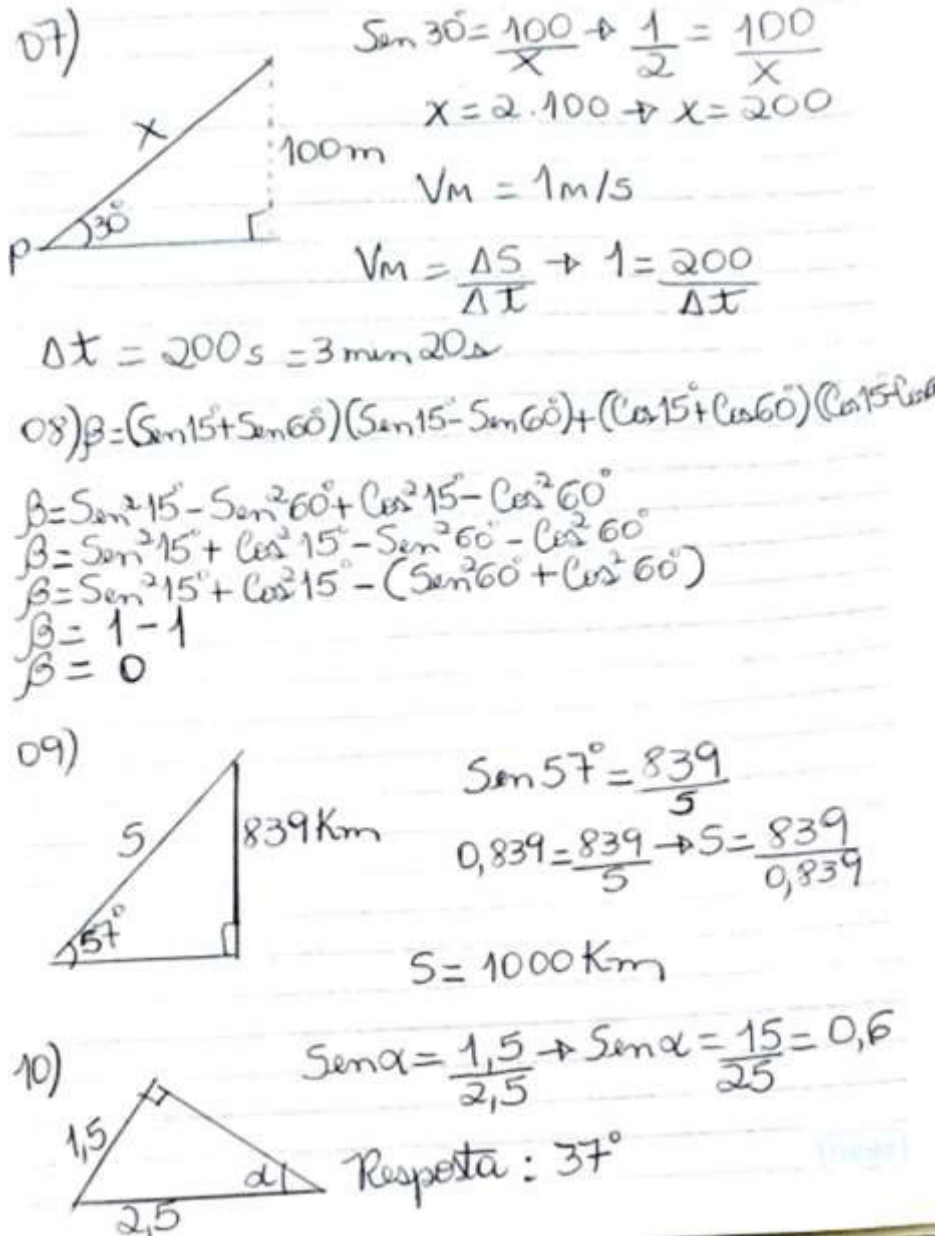 07)
Sen 30° = 100/x → 1/2 = 100/x
x = 2 . 100 → x = 200
x
100m
30°
P
Vm = 1m/s
Vm = ΔS/Δt → 1 = 200/Δt
Δt = 200s = 3 min 20s
08) β = (Sen15° + Sen60°)(Sen15° - Sen60°) + (Cos15° + Cos60°)(Cos15° - Cos6
β = Sen²15° - Sen²60° + Cos²15° - Cos²60°
β = Sen²15° + Cos²15° - Sen²60° - Cos²60°
β = Sen²15° + Cos²15° - (Sen²60° + Cos²60°)
β = 1 - 1
β = 0
09)
S
839Km
57°
Sen 57° = 839/S
0,839 = 839/S → S = 839/0,839
S = 1000 Km
10)
1,5
2,5
α
Senα = 1,5/2,5 → Senα = 15/25 = 0,6
Resposta : 37°